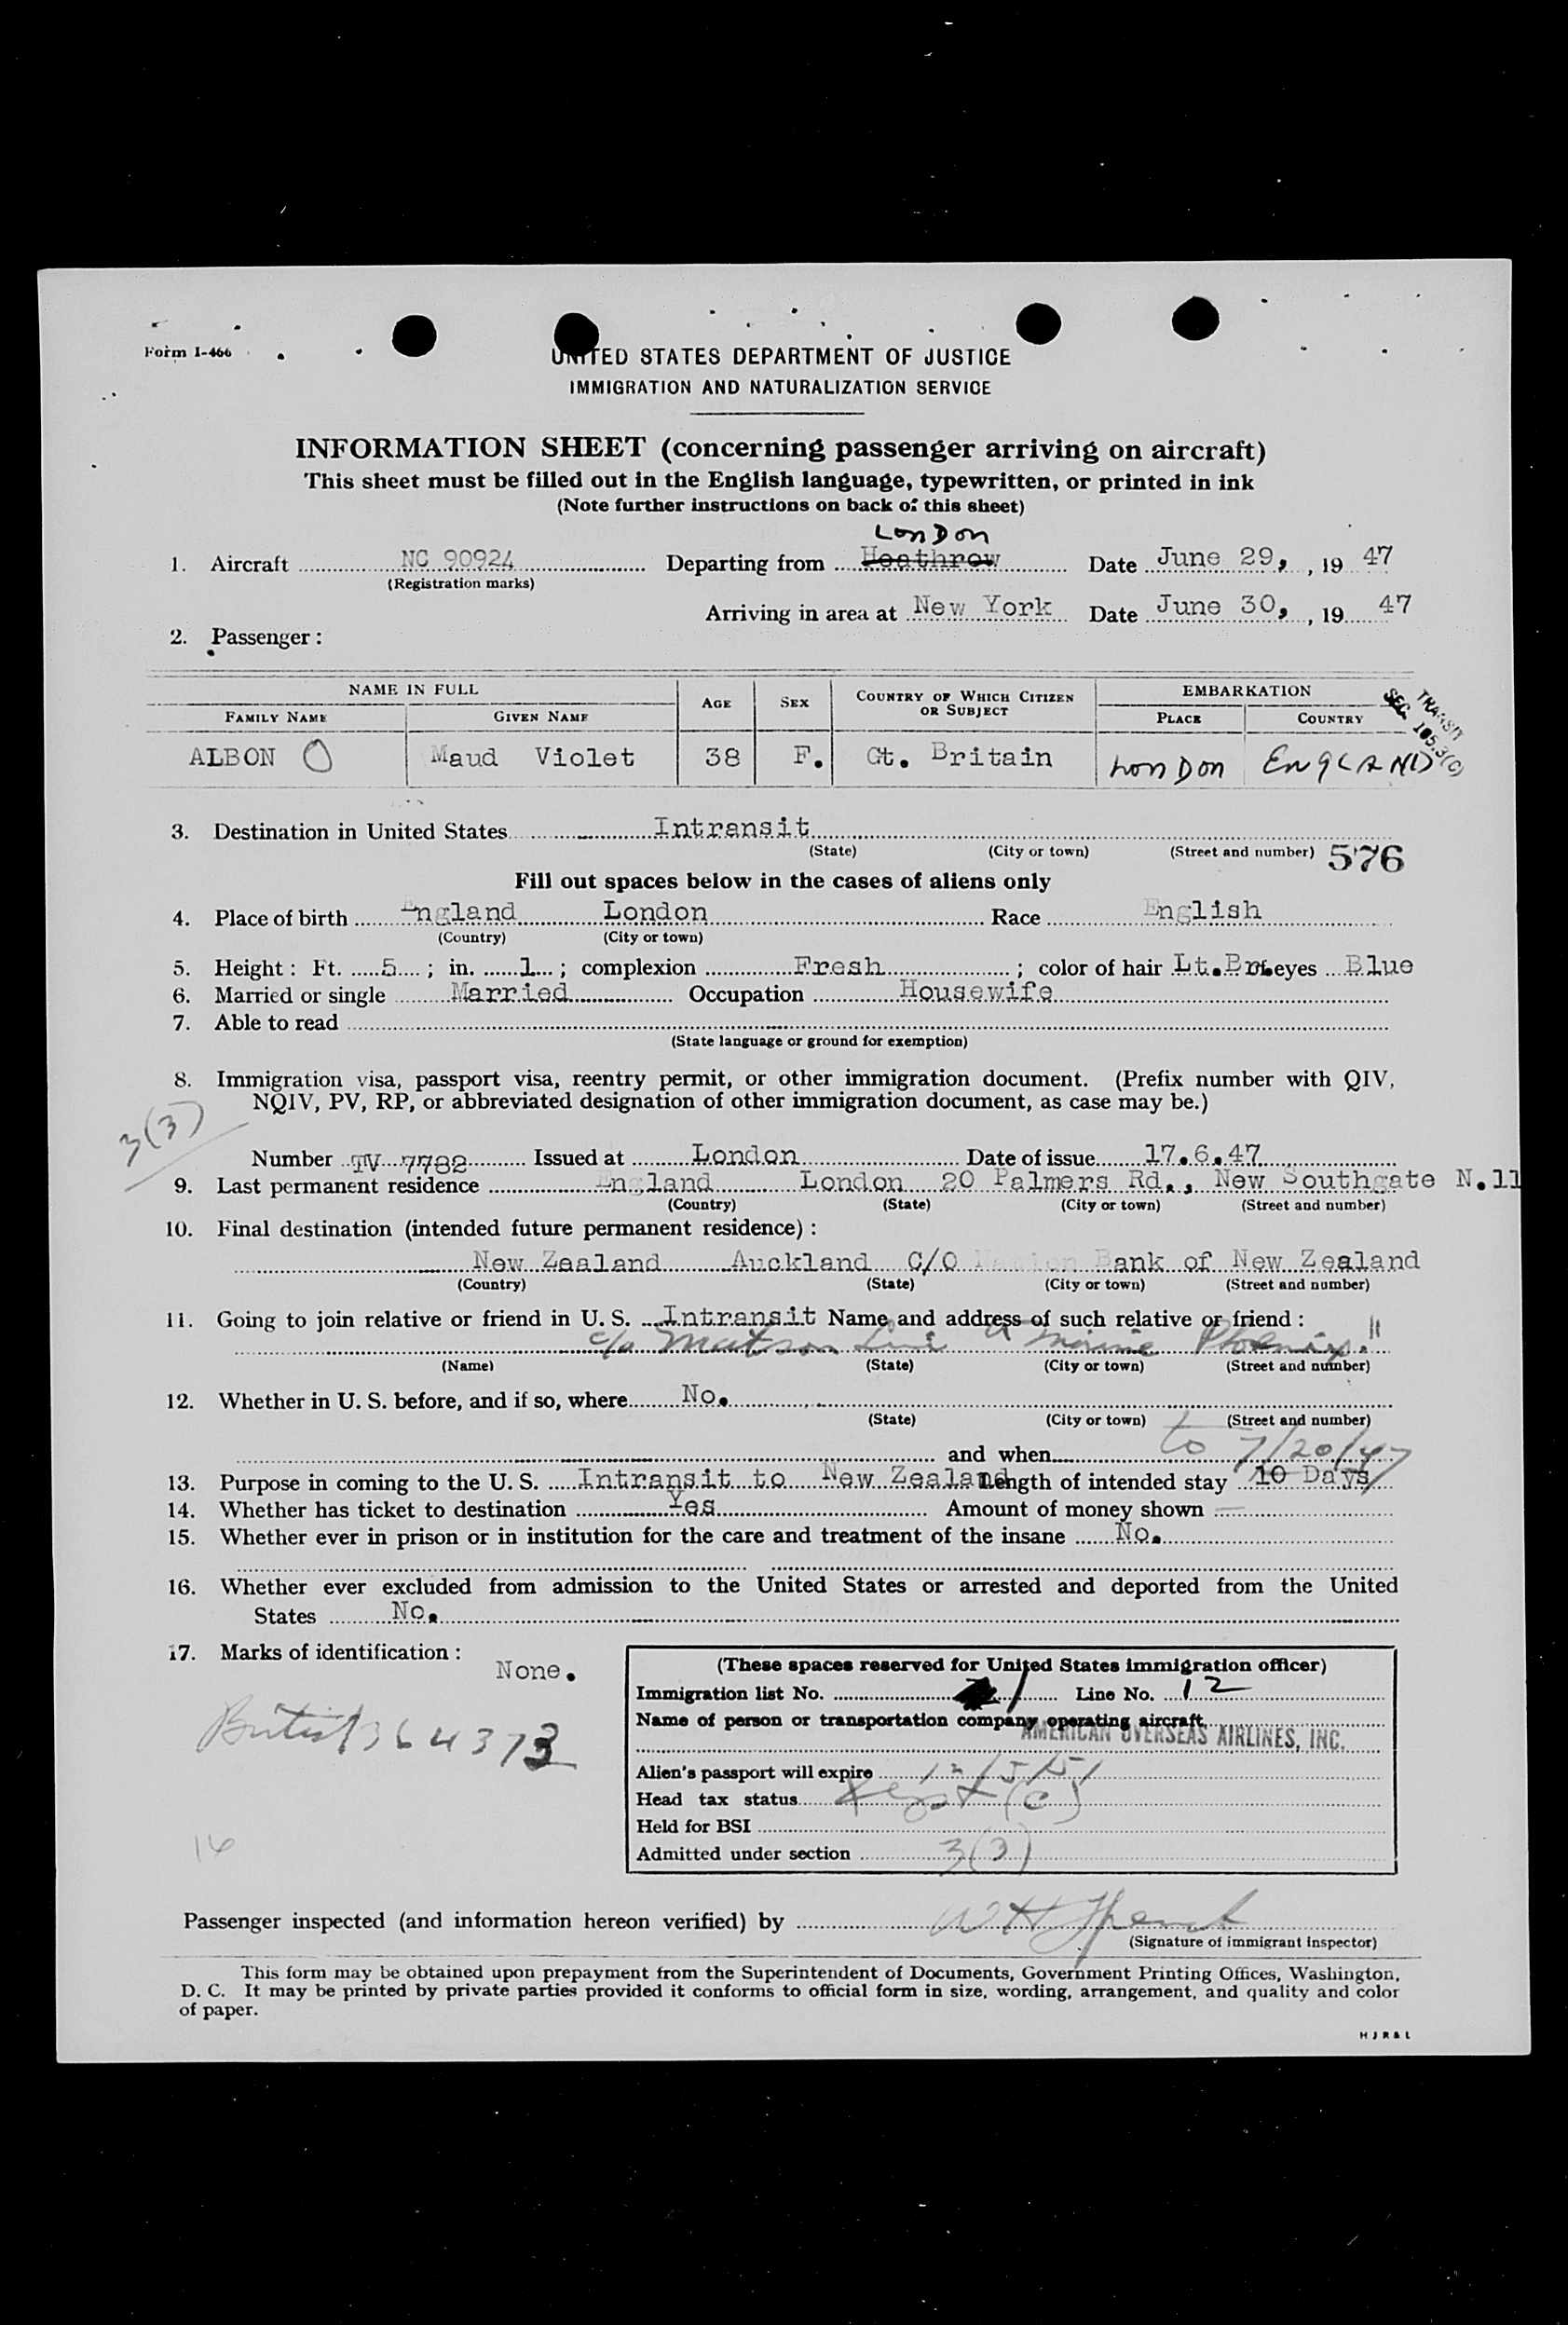 Form I-466
UNITED STATES DEPARTMENT OF JUSTICE
IMMIGRATION AND NATURALIZATION SERVICE
INFORMATION SHEET (concerning passenger arriving on aircraft)
This sheet must be filled out in the English language, typewritten, or printed in ink
(Note further instructions on back of this sheet)
LonDon
1. Aircraft NC 90924 Departing from Heathrow Date June 29, , 19 47
(Registration marks)
Arriving in area at New York Date June 30, , 19 47
2. Passenger :
NAME IN FULL AGE SEX COUNTRY OF WHICH CITIZEN OR SUBJECT EMBARKATION
FAMILY NAME GIVEN NAME PLACE COUNTRY
TRANSIT
SEC. 105.3(C)
ALBON O Maud Violet 38 F. Gt. Britain LonDon ENGLAND
3. Destination in United States Intransit
(State) (City or town) (Street and number) 576
Fill out spaces below in the cases of aliens only
4. Place of birth England London Race English
(Country) (City or town)
5. Height : Ft. 5 ; in. 1 ; complexion Fresh ; color of hair Lt.Br. eyes Blue
6. Married or single Married Occupation Housewife
7. Able to read
(State language or ground for exemption)
8. Immigration visa, passport visa, reentry permit, or other immigration document. (Prefix number with QIV,
NQIV, PV, RP, or abbreviated designation of other immigration document, as case may be.)
3(3)
Number TV 7782 Issued at London Date of issue 17.6.47
9. Last permanent residence England London 20 Palmers Rd., New Southgate N.11
(Country) (State) (City or town) (Street and number)
10. Final destination (intended future permanent residence) :
New Zealand Auckland C/O Bank of New Zealand
(Country) (State) (City or town) (Street and number)
11. Going to join relative or friend in U. S. Intransit Name and address of such relative or friend :
c/o Matson Line "Marine Phoenix"
(Name) (State) (City or town) (Street and number)
12. Whether in U. S. before, and if so, where No.
(State) (City or town) (Street and number)
and when to 7/20/47
13. Purpose in coming to the U. S. Intransit to New Zealand Length of intended stay 10 Days
14. Whether has ticket to destination Yes Amount of money shown —
15. Whether ever in prison or in institution for the care and treatment of the insane No.
16. Whether ever excluded from admission to the United States or arrested and deported from the United
States No.
17. Marks of identification :
None.
British 364373
16
(These spaces reserved for United States immigration officer)
Immigration list No. 1 Line No. 12
Name of person or transportation company operating aircraft
AMERICAN OVERSEAS AIRLINES, INC.
Alien's passport will expire 12/5/51
Head tax status (c)
Held for BSI
Admitted under section 3(3)
Passenger inspected (and information hereon verified) by W H
(Signature of immigrant inspector)
This form may be obtained upon prepayment from the Superintendent of Documents, Government Printing Offices, Washington,
D. C. It may be printed by private parties provided it conforms to official form in size, wording, arrangement, and quality and color
of paper.
H J R & L